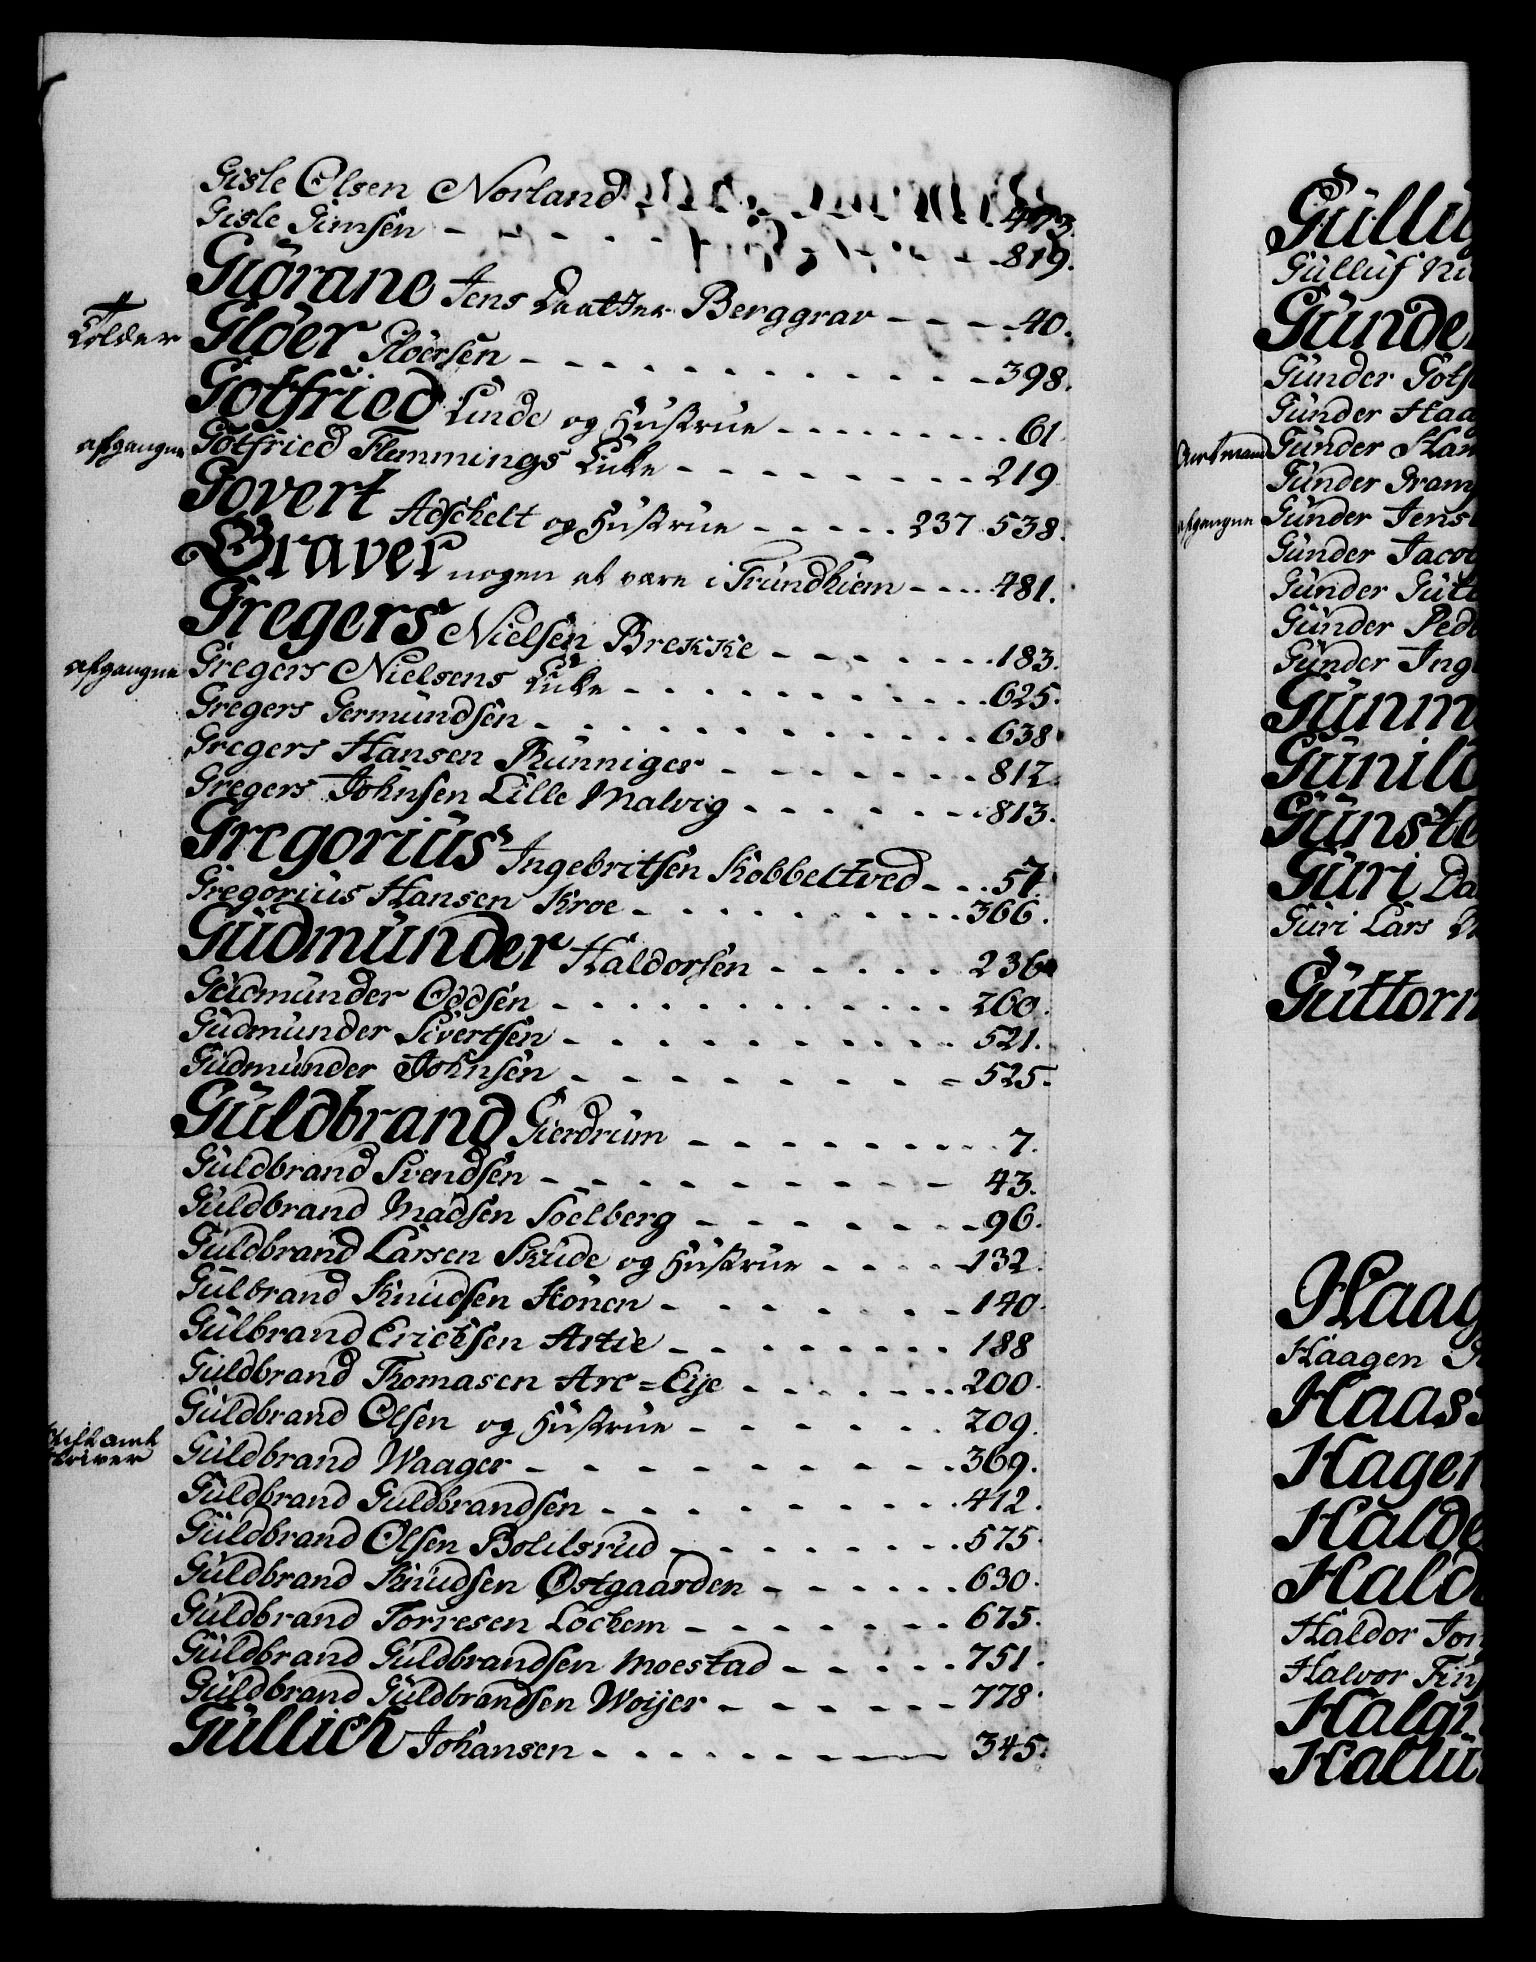 Gisle Olsen Norland - - - - - - 473.
Gisle Simsen - - - - - - - - - - 819.
Giörane Jens Daatter Berggrav - - - - 40.
Tolder Glöer Glöersen - - - - - - - - - - - - 398.
Gotfried Linde og Hustrue - - - - - - - - - 61.
afgangne Gotfried Flemmings Enke - - - - - - - - - 219
Govert Adschelt og Hustrue - - - - - 237. 538.
Graver nogen at være i Trundhiem - - - - 481.
Gregers Nielsen Brekke - - - - - - - - 183.
afgangne Gregers Nielsens Enke - - - - - - - - - - - 625.
Gregers Germundsen - - - - - - - - - - - - 638.
Gregers Hansen Runniger - - - - - - - - 812.
Gregers Johnsen Lille Malvig - - - - - - - 813.
Gregorius Ingebritsen Kobbeltved - - - 57.
Gregorius Hansen Kroe - - - - - - - - - - 366.
Gudmunder Haldorsen - - - - - 236.
Gudmunder Oddsen - - - - - - - - - - - 260.
Gudmunder Sivertsen - - - - - - - - - - 521.
Gudmunder Johnsen - - - - - - - - 525.
Guldbrand Gierdrum - - - - - - - - - 7.
Guldbrand Svendsen - - - - - - - - - - 43.
Guldbrand Madsen Soelberg - - - - - - - - 96.
Guldbrand Larsen Skude og Hustrue - - - - - 132.
Gulbrand Knudsen Hönen - - - - - - - - 140.
Gulbrand Erichsen Artie - - - - - - - - - 188
Guldbrand Thomasen Arc=Eije - - - - - - - 200.
Guldbrand Olsen og Hustrue - - - - - - - 209.
Stiftamt
skriver Guldbrand Waager - - - - - - - - - - - 369.
Guldbrand Guldbrandsen - - - - - - - - - 412.
Guldbrand Olsen Bolilsrud - - - - - - - - - 575.
Guldbrand Knudsen Østgaarden - - - - - - 630.
Guldbrand Torresen Lochem - - - - - - - 675.
Guldbrand Guldbrandsen Moestad - - - - - 751.
Guldbrand Guldbrandsen Woijer - - - - - - 778.
Gullich Johansen - - - - - - - - - 345.
Gulluf
Gunder
Gunder
Gunder
Amtmand Gunder
Gunder
afgangne Gunder Jens
Gunder Jacob
Gunder
Gunder Ped
Gunder Ing
Gunm
Gunild
Gunste
Guri Da
Guri Lars
Guttorm
Haag
Haagen
Haas
Hagen
Halde
Hald
Haldor Jon
Halvor Fin